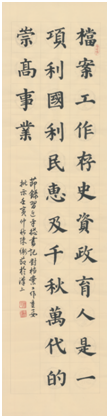 檔案工作存史資政育人是一
項利國利民惠及千秋萬代的
崇高事業
節錄習近平總書記對檔案工作重要
批示壬寅仲秋陳